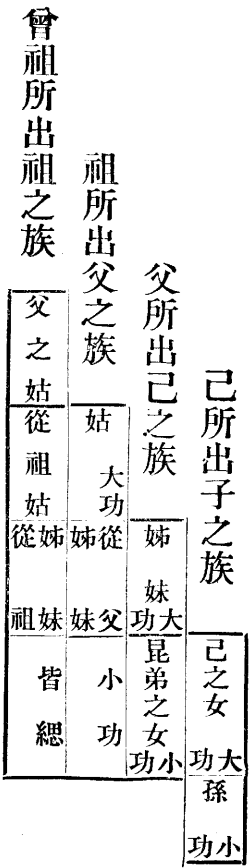 己所出子之族
己之女大功
孫小功
父所出己之族
姊妹大功
昆弟之女小功
祖所出父之族
姑大功
從父姊妹小功
曾祖所出祖之族
父之姑
從祖姑
姊妹從祖
皆緦